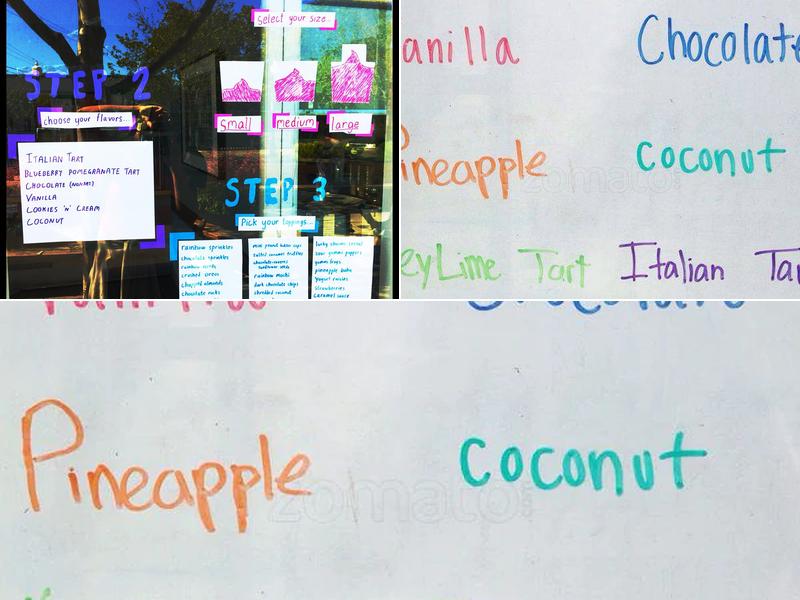 Select your size...
STEP 2
choose your flavors...
small medium large
ITALIAN TART
BLUEBERRY POMEGRANATE TART
CHOCOLATE
VANILLA
COOKIES 'N' CREAM
COCONUT
STEP 3
Pick your toppings...
rainbow sprinkles
chocolate sprinkles
rainbow nerds
crushed oreos
chopped almonds
chocolate rocks
mini peanut butter cups
salted caramel truffles
chocolate-covered
sunflower seeds
rainbow mochi
dark chocolate chips
shredded coconut
lucky charms cereal
sour gummy poppers
gummy frogs
pineapple
yogurt raisins
strawberries
caramel sauce
anilla Chocolate
ineapple coconut
eyLime Tart Italian Tar
Pineapple coconut
zomato